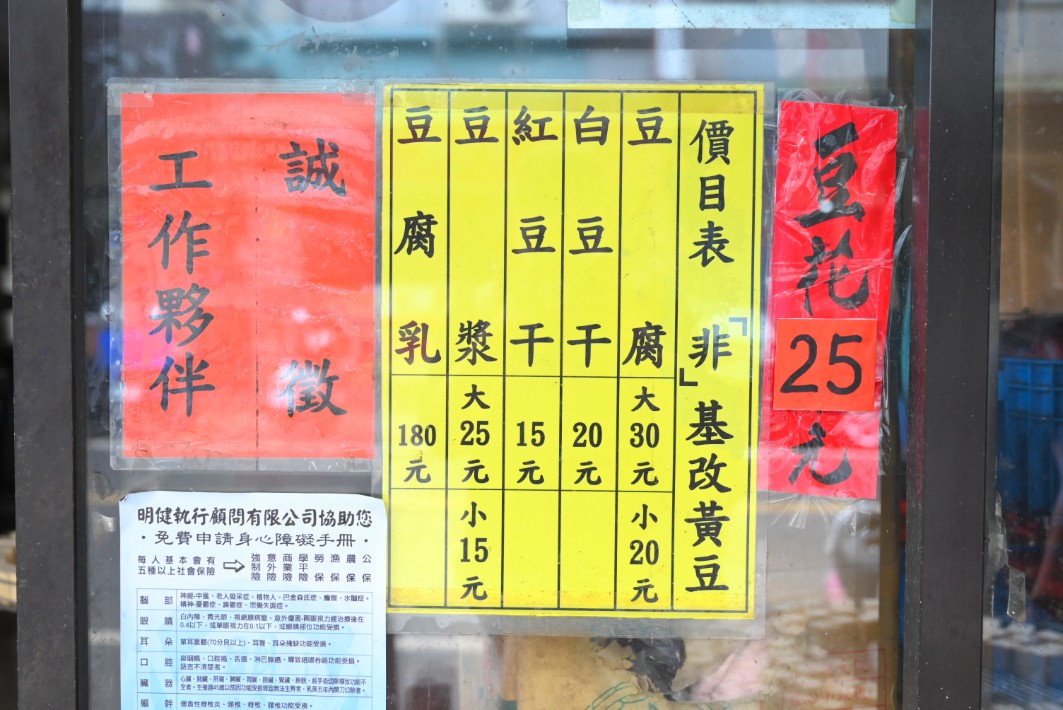 豆花
25
元
價目表「非」基改黃豆
豆腐 大30元 小20元
白豆干 20元
紅豆干 15元
豆漿 大25元 小15元
豆腐乳 180元
誠徵
工作夥伴
明健執行顧問有限公司協助您
・免費申請身心障礙手冊・
每人基本會有
五種以上社會保險
強意商學勞漁農公
制外業平
險險險險保保保保
腦部
眼睛
耳朵 單耳重聽(70分貝以上)、耳聾、耳朵殘缺功能受損。
口腔
語言不清楚者。
臟器
軀幹